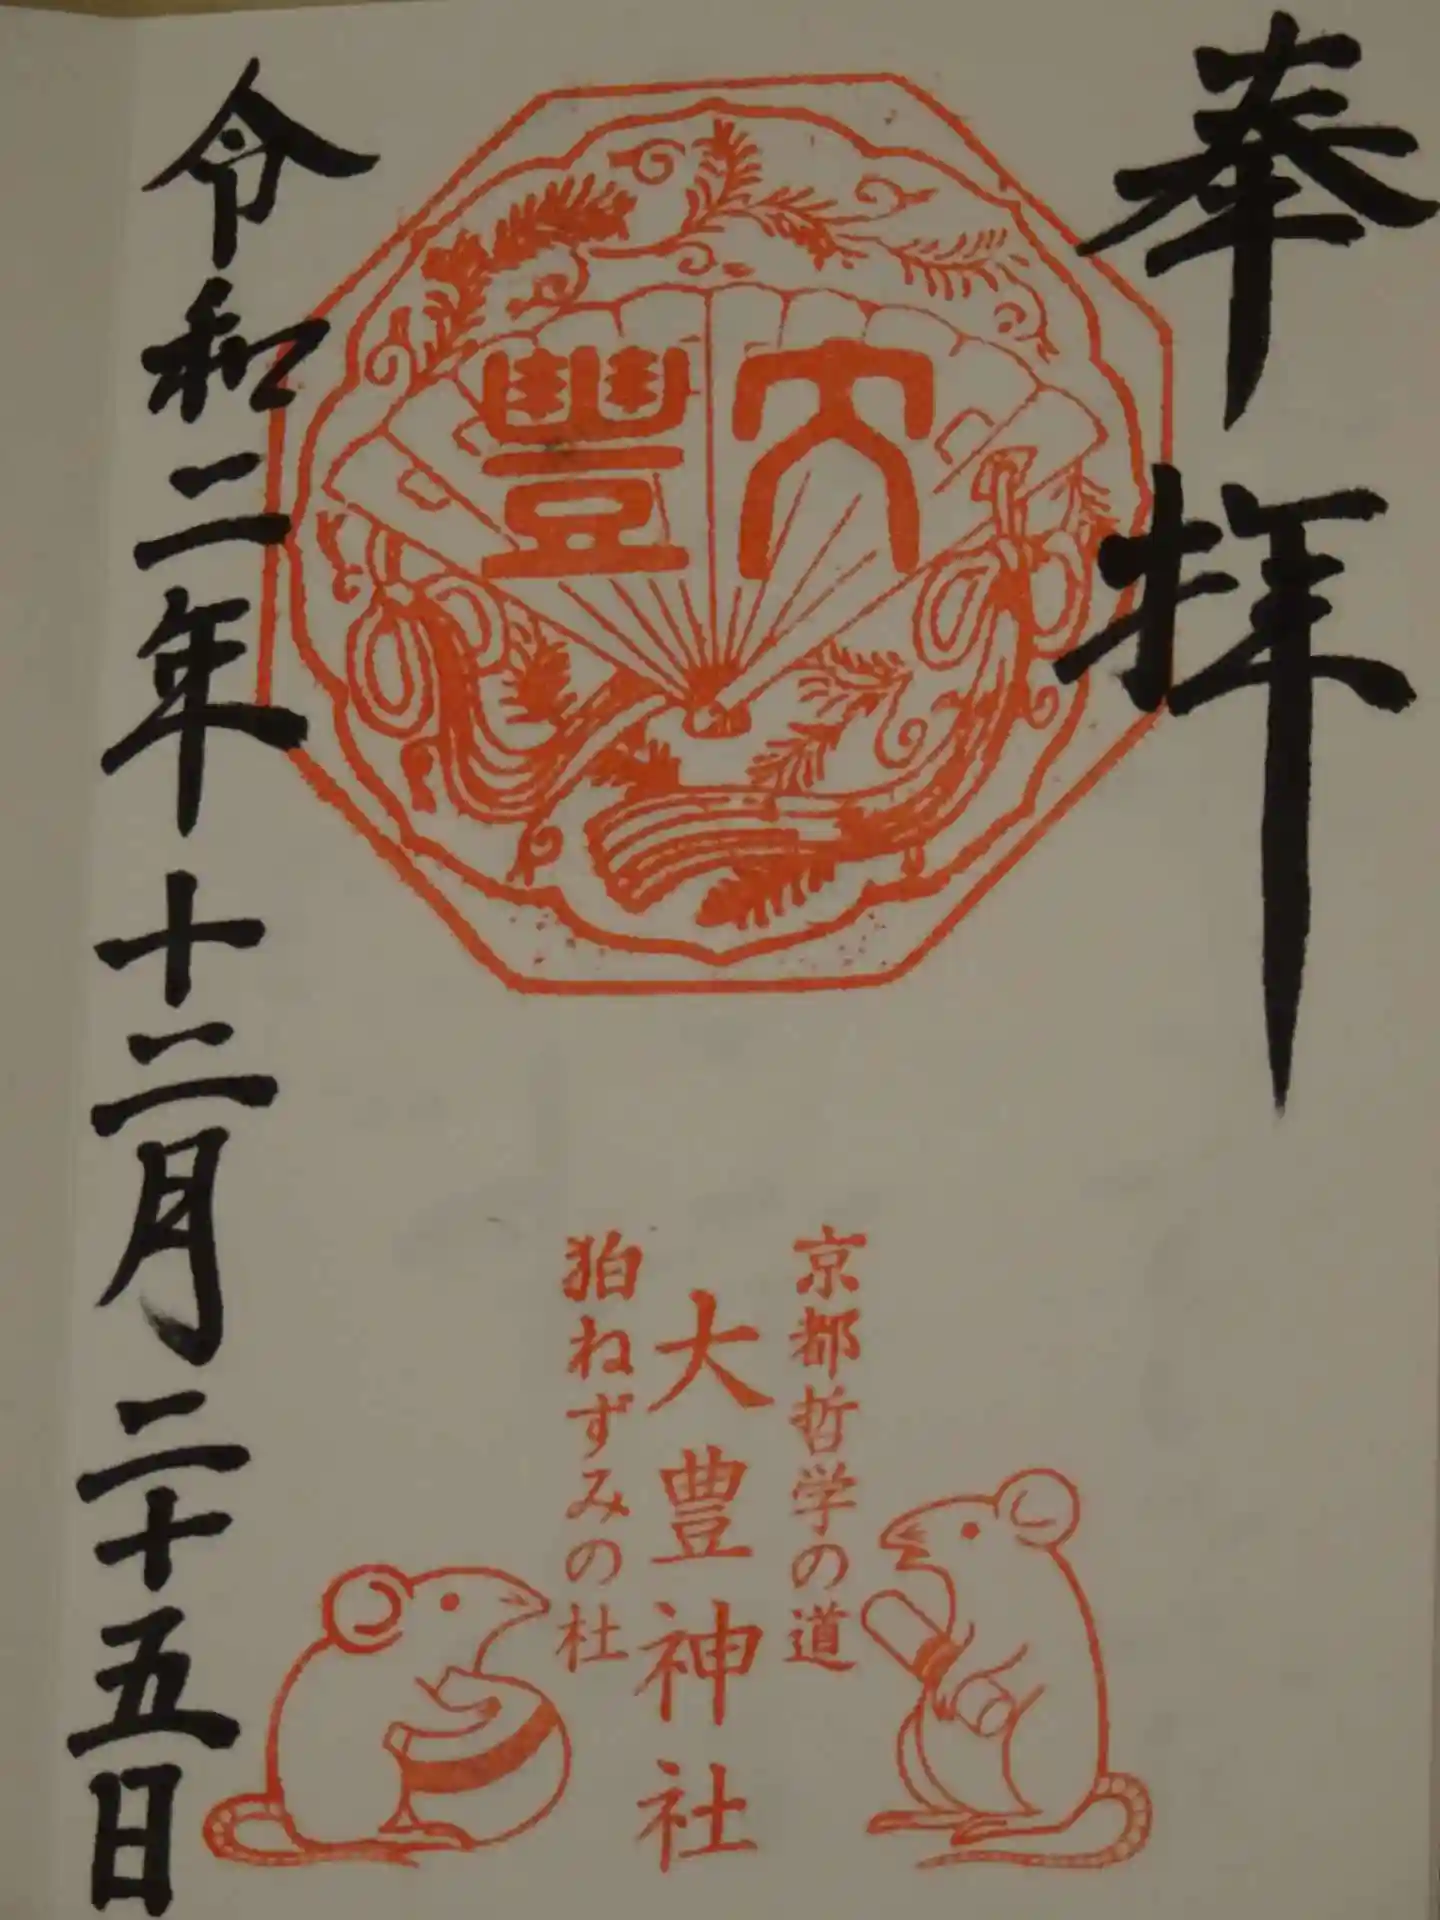 奉拝
大豐
京都哲学の道
大豊神社
狛ねずみの杜
令和二年十二月二十五日